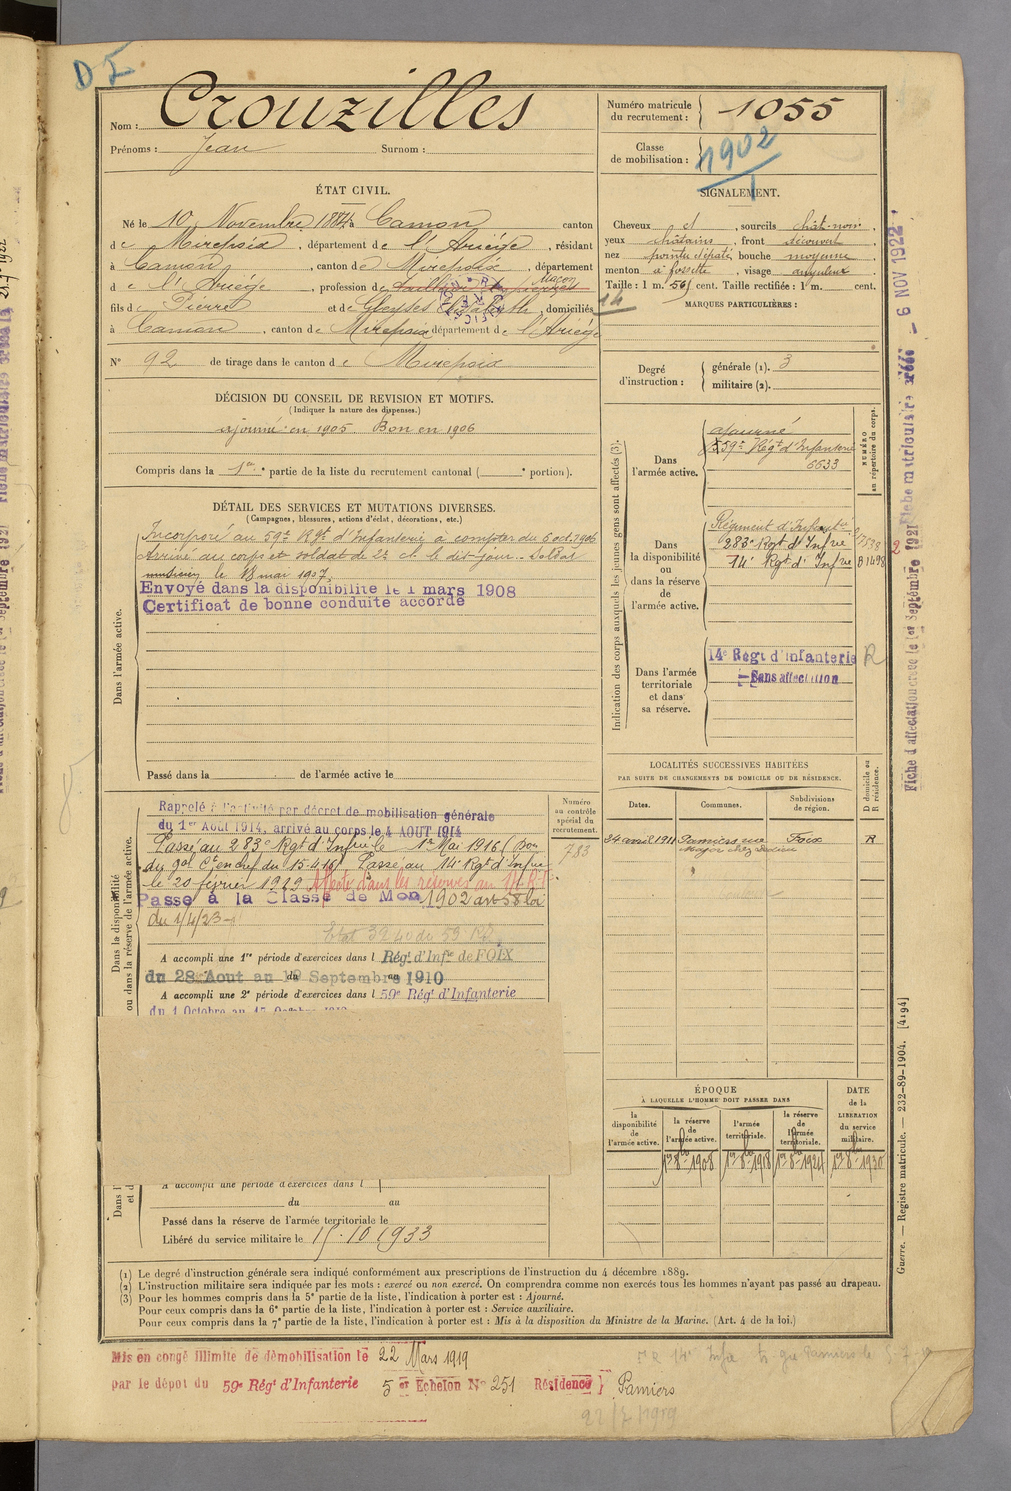 D I
Nom : Crouzilles
Prénoms : Jean Surnom :
Numéro matricule du recrutement : 1055
Classe de mobilisation : 1902
ÉTAT CIVIL.
Né le 10 Novembre 1884 à Camon canton
de Mirepoix, département de l'Ariége, résidant
à Camon, canton de Mirepoix, département
de l'Ariége, profession de Maçon
fils de Pierre et de Elisabeth, domiciliés
à Camon, canton de Mirepoix département de l'Ariége
N° 92 de tirage dans le canton de Mirepoix
SIGNALEMENT.
Cheveux d, sourcils chât-noir,
yeux châtains, front découvert
nez pointu épaté, bouche moyenne,
menton à fossette, visage anguleux
Taille : 1 m. 56 cent. Taille rectifiée : 1 m. cent.
14
MARQUES PARTICULIÈRES :
Degré d'instruction : générale (1). 3
militaire (2).
DÉCISION DU CONSEIL DE REVISION ET MOTIFS.
(Indiquer la nature des dispenses.)
ajourné en 1905 Bon en 1906
Compris dans la 1re partie de la liste du recrutement cantonal ( portion).
DÉTAIL DES SERVICES ET MUTATIONS DIVERSES.
(Campagnes, blessures, actions d'éclat, décorations, etc.)
Dans l'armée active.
Incorporé au 59e Rgt d'Infanterie à compter du 6 oct. 1906
Arrivé au corps et soldat de 2e cl. le dit jour. Soldat
musicien le 18 mai 1907.
Envoyé dans la disponibilité le 1 mars 1908
Certificat de bonne conduite accordé
Passé dans la de l'armée active le
Indication des corps auxquels les jeunes gens sont affectés (3).
NUMÉRO au répertoire du corps.
Dans l'armée active.
ajourné
59e Régt d'Infanterie
6633
Dans la disponibilité ou dans la réserve de l'armée active.
Régiment d'Infanterie
283e Rgt d'Infrie
14e Rgt d'Infrie B1498
Dans l'armée territoriale et dans sa réserve.
14e Régt d'Infanterie R
Sans affectation
LOCALITÉS SUCCESSIVES HABITÉES
PAR SUITE DE CHANGEMENTS DE DOMICILE OU DE RÉSIDENCE.
D domicile ou R résidence.
Dates. Communes. Subdivisions de région.
24 avril 1911 Pamiers rue Foix R
Major chez
Dans la disponibilité ou dans la réserve de l'armée active.
Numéro au contrôle spécial du recrutement.
783
Rappelé à l'activité par décret de mobilisation générale
du 1er Aout 1914, arrivé au corps le 4 AOUT 1914
Passé au 283e Rgt d'Infrie le 1er Mai 1916 (Bon
du gal Ct en chef du 15-4-16) Passé au 14e Rgt d'Infrie
le 20 février 1919 Affecté dans les réserves au 14e R.I.
Passé à la Classe de Mon 1902 art 58 loi
du 1/4/23
A accompli une 1re période d'exercices dans l Régt d'Infie de FOIX
du 28 Aout au 19 Septembre 1910
A accompli une 2e période d'exercices dans l 59e Régt d'Infanterie
du 1 Octobre au 17 Octobre
A accompli une période d'exercices dans l
du au
Passé dans la réserve de l'armée territoriale le
Libéré du service militaire le 15.10.1933
ÉPOQUE
À LAQUELLE L'HOMME DOIT PASSER DANS
DATE de la LIBÉRATION du service militaire.
la disponibilité de l'armée active.
la réserve de l'armée active.
l'armée territoriale.
la réserve de l'armée territoriale.
1er 8bre 1908 1er 8bre 1918 1er 8bre 1924 1er 8bre 1930
(1) Le degré d'instruction générale sera indiqué conformément aux prescriptions de l'instruction du 4 décembre 1889.
(2) L'instruction militaire sera indiquée par les mots : exercé ou non exercé. On comprendra comme non exercés tous les hommes n'ayant pas passé au drapeau.
(3) Pour les hommes compris dans la 5e partie de la liste, l'indication à porter est : Ajourné.
Pour ceux compris dans la 6e partie de la liste, l'indication à porter est : Service auxiliaire.
Pour ceux compris dans la 7e partie de la liste, l'indication à porter est : Mis à la disposition du Ministre de la Marine. (Art. 4 de la loi.)
Mis en congé illimité de démobilisation le 22 Mars 1919
par le dépôt du 59e Régt d'Infanterie 5er Echelon N° 251 Résidence } Pamiers
22/7/1919
Guerre. — Registre matricule. — 232-89-1904. [4194]
Fiche d'affectation créée le 1er Septembre 1921
Fiche matriculaire créée — 6 NOV 1922